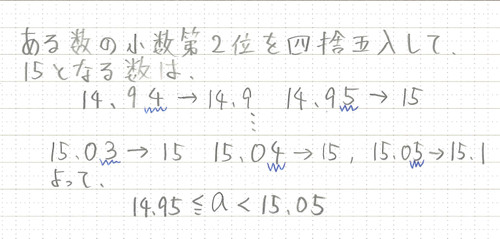 ある数の小数第2位を四捨五入して、
15となる数は、
14.94→14.9 14.95→15
⋮
15.03→15 15.04→15, 15.05→15.1
よって、
14.95≦a<15.05